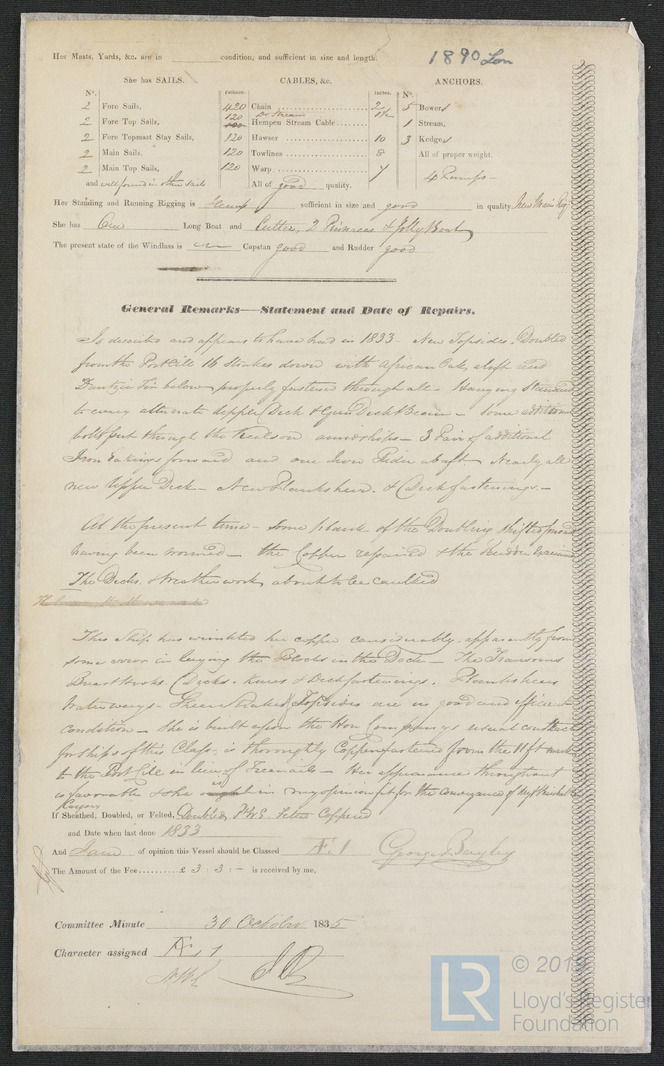 Her Masts, Yards, &c. are in condition, and sufficient in size and length.
1890 Lon
She has SAILS.
CABLES, &c.
ANCHORS.
N°.
Fathoms.
Inches.
N°.
2 Fore Sails,
2 Fore Top Sails,
2 Fore Topmast Stay Sails,
2 Main Sails,
2 Main Top Sails,
and well found in other sails
Chain 420 2
Hempen Stream Cable 120
Hawser 120 10
Towlines 120 8
Warp 120 7
All of good quality.
5 Bowers
1 Stream,
3 Kedges
All of proper weight.
4 Pumps
Her Standing and Running Rigging is Hemp sufficient in size and good in quality. New Main Rig
She has One Long Boat and Cutter, 2 Pinnaces & Jolly Boat
The present state of the Windlass is Capstan good and Rudder good
General Remarks—Statement and Date of Repairs.
Is described and appears to have had in 1833 - New Topsides. Doubled
from the Port Sill 16 Strakes down with African Oak aloft and
Dantzic Fir below properly fastened through all - Hanging Standard
to every alternate Upper Deck & Gun Deck Beam - some additional
bolts put through the Keelson amidships - 3 Pair of additional
Iron forward and one Iron Rider abaft. Nearly all
new Upper Deck - New Plankshear & Deck fastenings. -
At the present time - some plank of the Doubling shifted
having been wormed - the Copper repaired & the Rudder
The Decks & weather work about to be caulked
This ship has wrinkled her copper considerably, apparently from
some error in laying the Blocks in the Dock - The Transoms
Decks. Knees & Deck fastenings. Plankshears
Waterways - Sheer Strakes & Topsides are in good and efficient
condition - She is built upon the Hon Companys usual
for ships of this Class, is thoroughly Copper fastened from the 11 ft mark
to the Port Sill in lieu of Treenails - Her appearance throughout
is favorable & she is in my opinion fit for the conveyance of
If Sheathed, Doubled, or Felted, Doubled, Felted Coppered
and Date when last done 1833
And I am of opinion this Vessel should be Classed Æ 1 George Bayley
The Amount of the Fee £ 3 : 3 : - is received by me,
Committee Minute 30 October 1835
Character assigned Æ 1
© 2019
LR
Lloyd's Register
Foundation